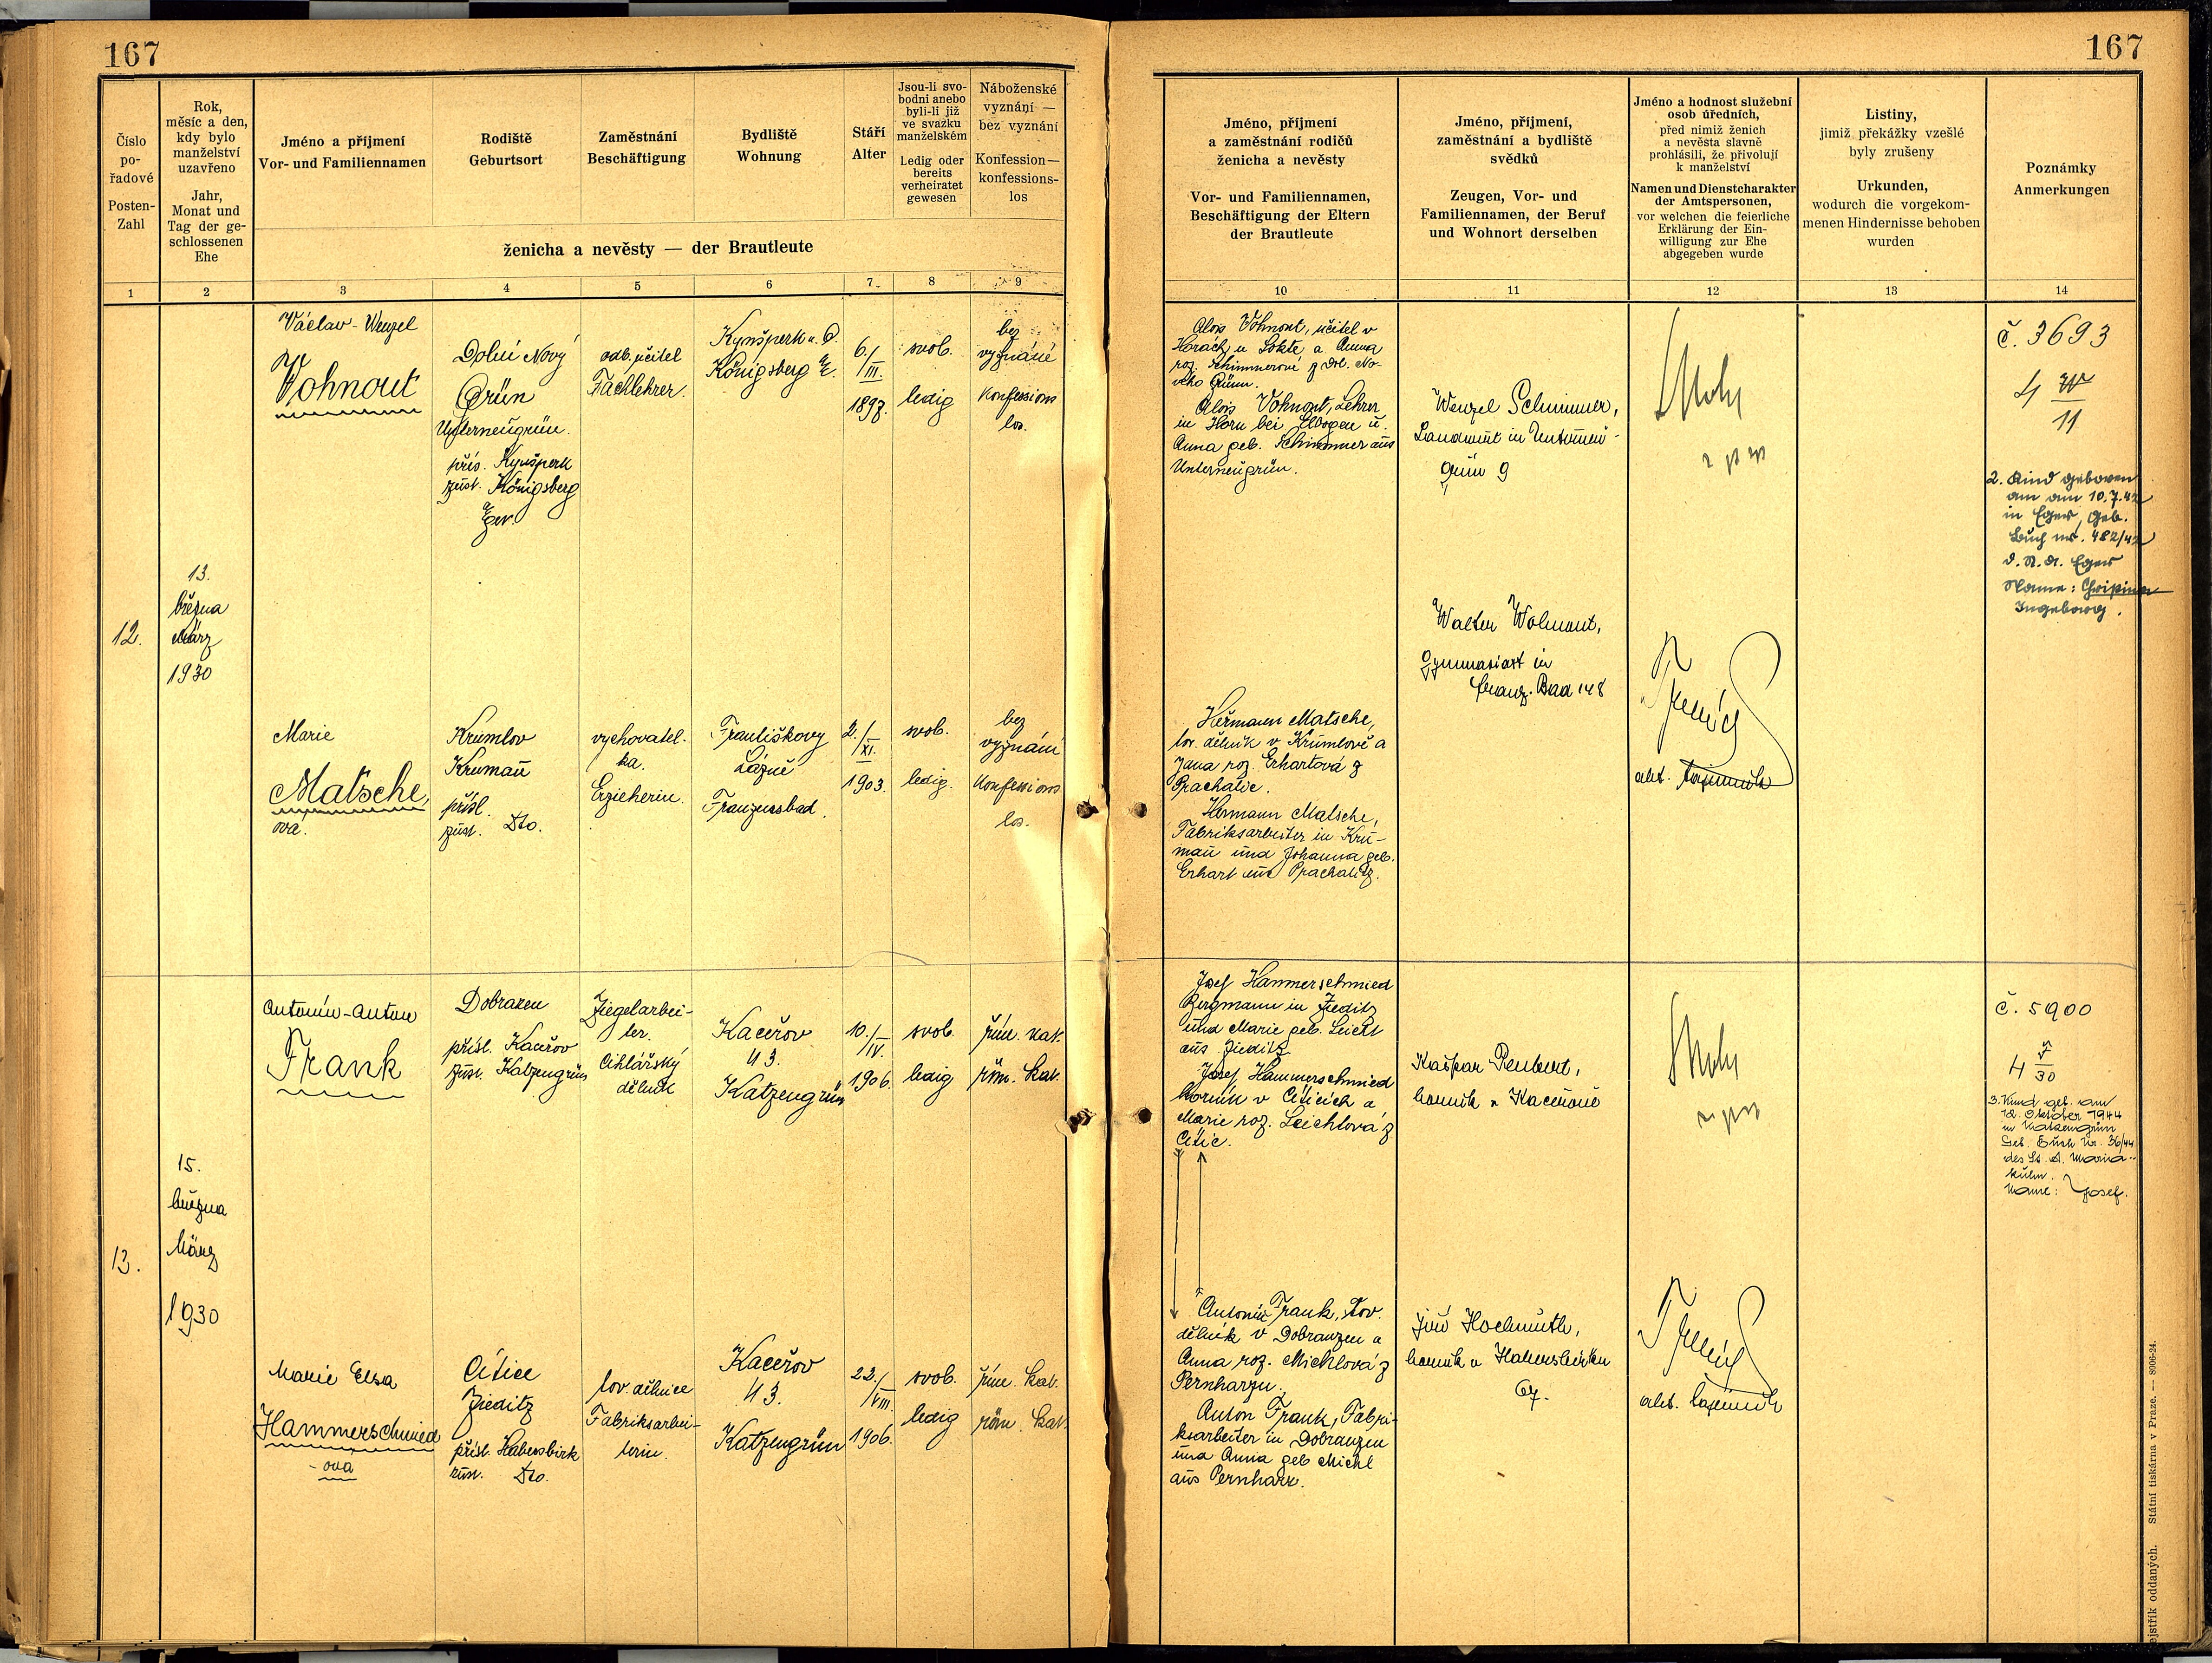 167
167
Číslo
po-
řadové
Posten-
Zahl
Rok,
měsíc a den,
kdy bylo
manželství
uzavřeno
Jahr,
Monat und
Tag der ge-
schlossenen
Ehe
Jméno a příjmení
Vor- und Familiennamen
Rodiště
Geburtsort
Zaměstnání
Beschäftigung
Bydliště
Wohnung
Stáří
Alter
Jsou-li svo-
bodni anebo
byli-li již
ve svazku
manželském
Ledig oder
bereits
verheiratet
gewesen
Náboženské
vyznání —
bez vyznání
Konfession—
konfessions-
los
ženicha a nevěsty — der Brautleute
Jméno, příjmení
a zaměstnání rodičů
ženicha a nevěsty
Vor- und Familiennamen,
Beschäftigung der Eltern
der Brautleute
Jméno, příjmení,
zaměstnání a bydliště
svědků
Zeugen, Vor- und
Familiennamen, der Beruf
und Wohnort derselben
Jméno a hodnost služební
osob úředních,
před nimiž ženich
a nevěsta slavně
prohlásili, že přivolují
k manželství
Namen und Dienstcharakter
der Amtspersonen,
vor welchen die feierliche
Erklärung der Ein-
willigung zur Ehe
abgegeben wurde
Listiny,
jimiž překážky vzešlé
byly zrušeny
Urkunden,
wodurch die vorgekom-
menen Hindernisse behoben
wurden
Poznámky
Anmerkungen
1 2 3 4 5 6 7 8 9 10 11 12 13 14
12.
13.
března
März
1930
Václav-Wenzel
Vohnout
Dolní Nový
Grün
Unterneugrün.
přís. Kynšperk
zust. Königsberg
Eger.
odb. učitel
Fachlehrer.
Kynšperk n. O.
Königsberg a/E.
6./III.
1897.
svob.
ledig
bez
vyznání
Konfessions
los.
Marie
Matsche,
ová.
Krumlov
Krumau
přísl.
zust. Dto.
vychovatel-
ka.
Erzieherin.
Františkovy
Lázně
Franzensbad.
2./XI.
1903.
svob.
ledig.
bez
vyznání
Konfessions
los.
Alois Vohnout, učitel v
Horách u Lokte a Anna
roz. Schimmerové z Dol. No-
vého Grünu.
Alois Vohnout, Lehrer
in Horn bei Elbogen u.
Anna geb. Schimmer aus
Unterneugrün.
Hermann Matsche,
tov. dělník v Krumlově a
Jana roz. Erhartová z
Prachatic.
Hermann Matsche,
Fabriksarbeiter in Kru-
mau und Johanna geb.
Erhart aus Prachatitz.
Wenzel Schimmer,
Landwirt in Unterneu-
grün 9
Walter Wohnout,
Gymnasiast in
Franz. Bad 148
akt. tajemník
č. 3693
4
11
2. Kind geboren
am am 10.7.42
in Eger, Geb.
Buch nr. 482/42
d. St. A. Eger
Name:
Ingeborg.
13.
15.
března
März
1930
Antonín-Anton
Frank
Dobrazen
přísl. Kaceřov
zust. Katzengrün
Ziegelarbei-
ter.
Cihlářský
dělník
Kaceřov
43.
Katzengrün
10./IV.
1906.
svob.
ledig
řím. kat.
röm. kat.
Marie Elsa
Hammerschmied
-ová
Cítice
Zieditz
přísl. Habersbirk
zust. Dto.
tov. dělnice
Fabriksarbei-
terin.
Kaceřov
43.
Katzengrün
22./VIII.
1906.
svob.
ledig
řím. kat.
röm. kat.
Josef Hammerschmied
Bergmann in Zieditz
und Marie geb. Leicht
aus Zieditz
Josef Hammerschmied
horník v Cíticích a
Marie roz. Leichtová z
Cític.
Antonín Frank, tov.
dělník v Dobranzen a
Anna roz. Michlová z
Pernharzu.
Anton Frank, Fabri-
ksarbeiter in Dobranzen
und Anna geb Michl
aus Pernharz.
Kašpar
horník v Kaceřově
Jiří Hochmuth,
horník v Habersbirku
67.
akt. tajemník
č. 5900
4
30
3. Kind geb. am
12. Oktober 1944
in Katzengrün
Geb. Buch Nr. 36/44
des St. A. Maria-
kulm.
Name: Josef.
ejstřík oddaných. Státní tiskárna v Praze. — 8006-24.